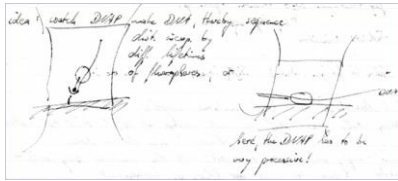 idea: watch DNAP make DNA, thereby sequence
dist. incorp. by
diff. lifetimes
of fluorophores; or
here, the DNAP has to be
very processive!